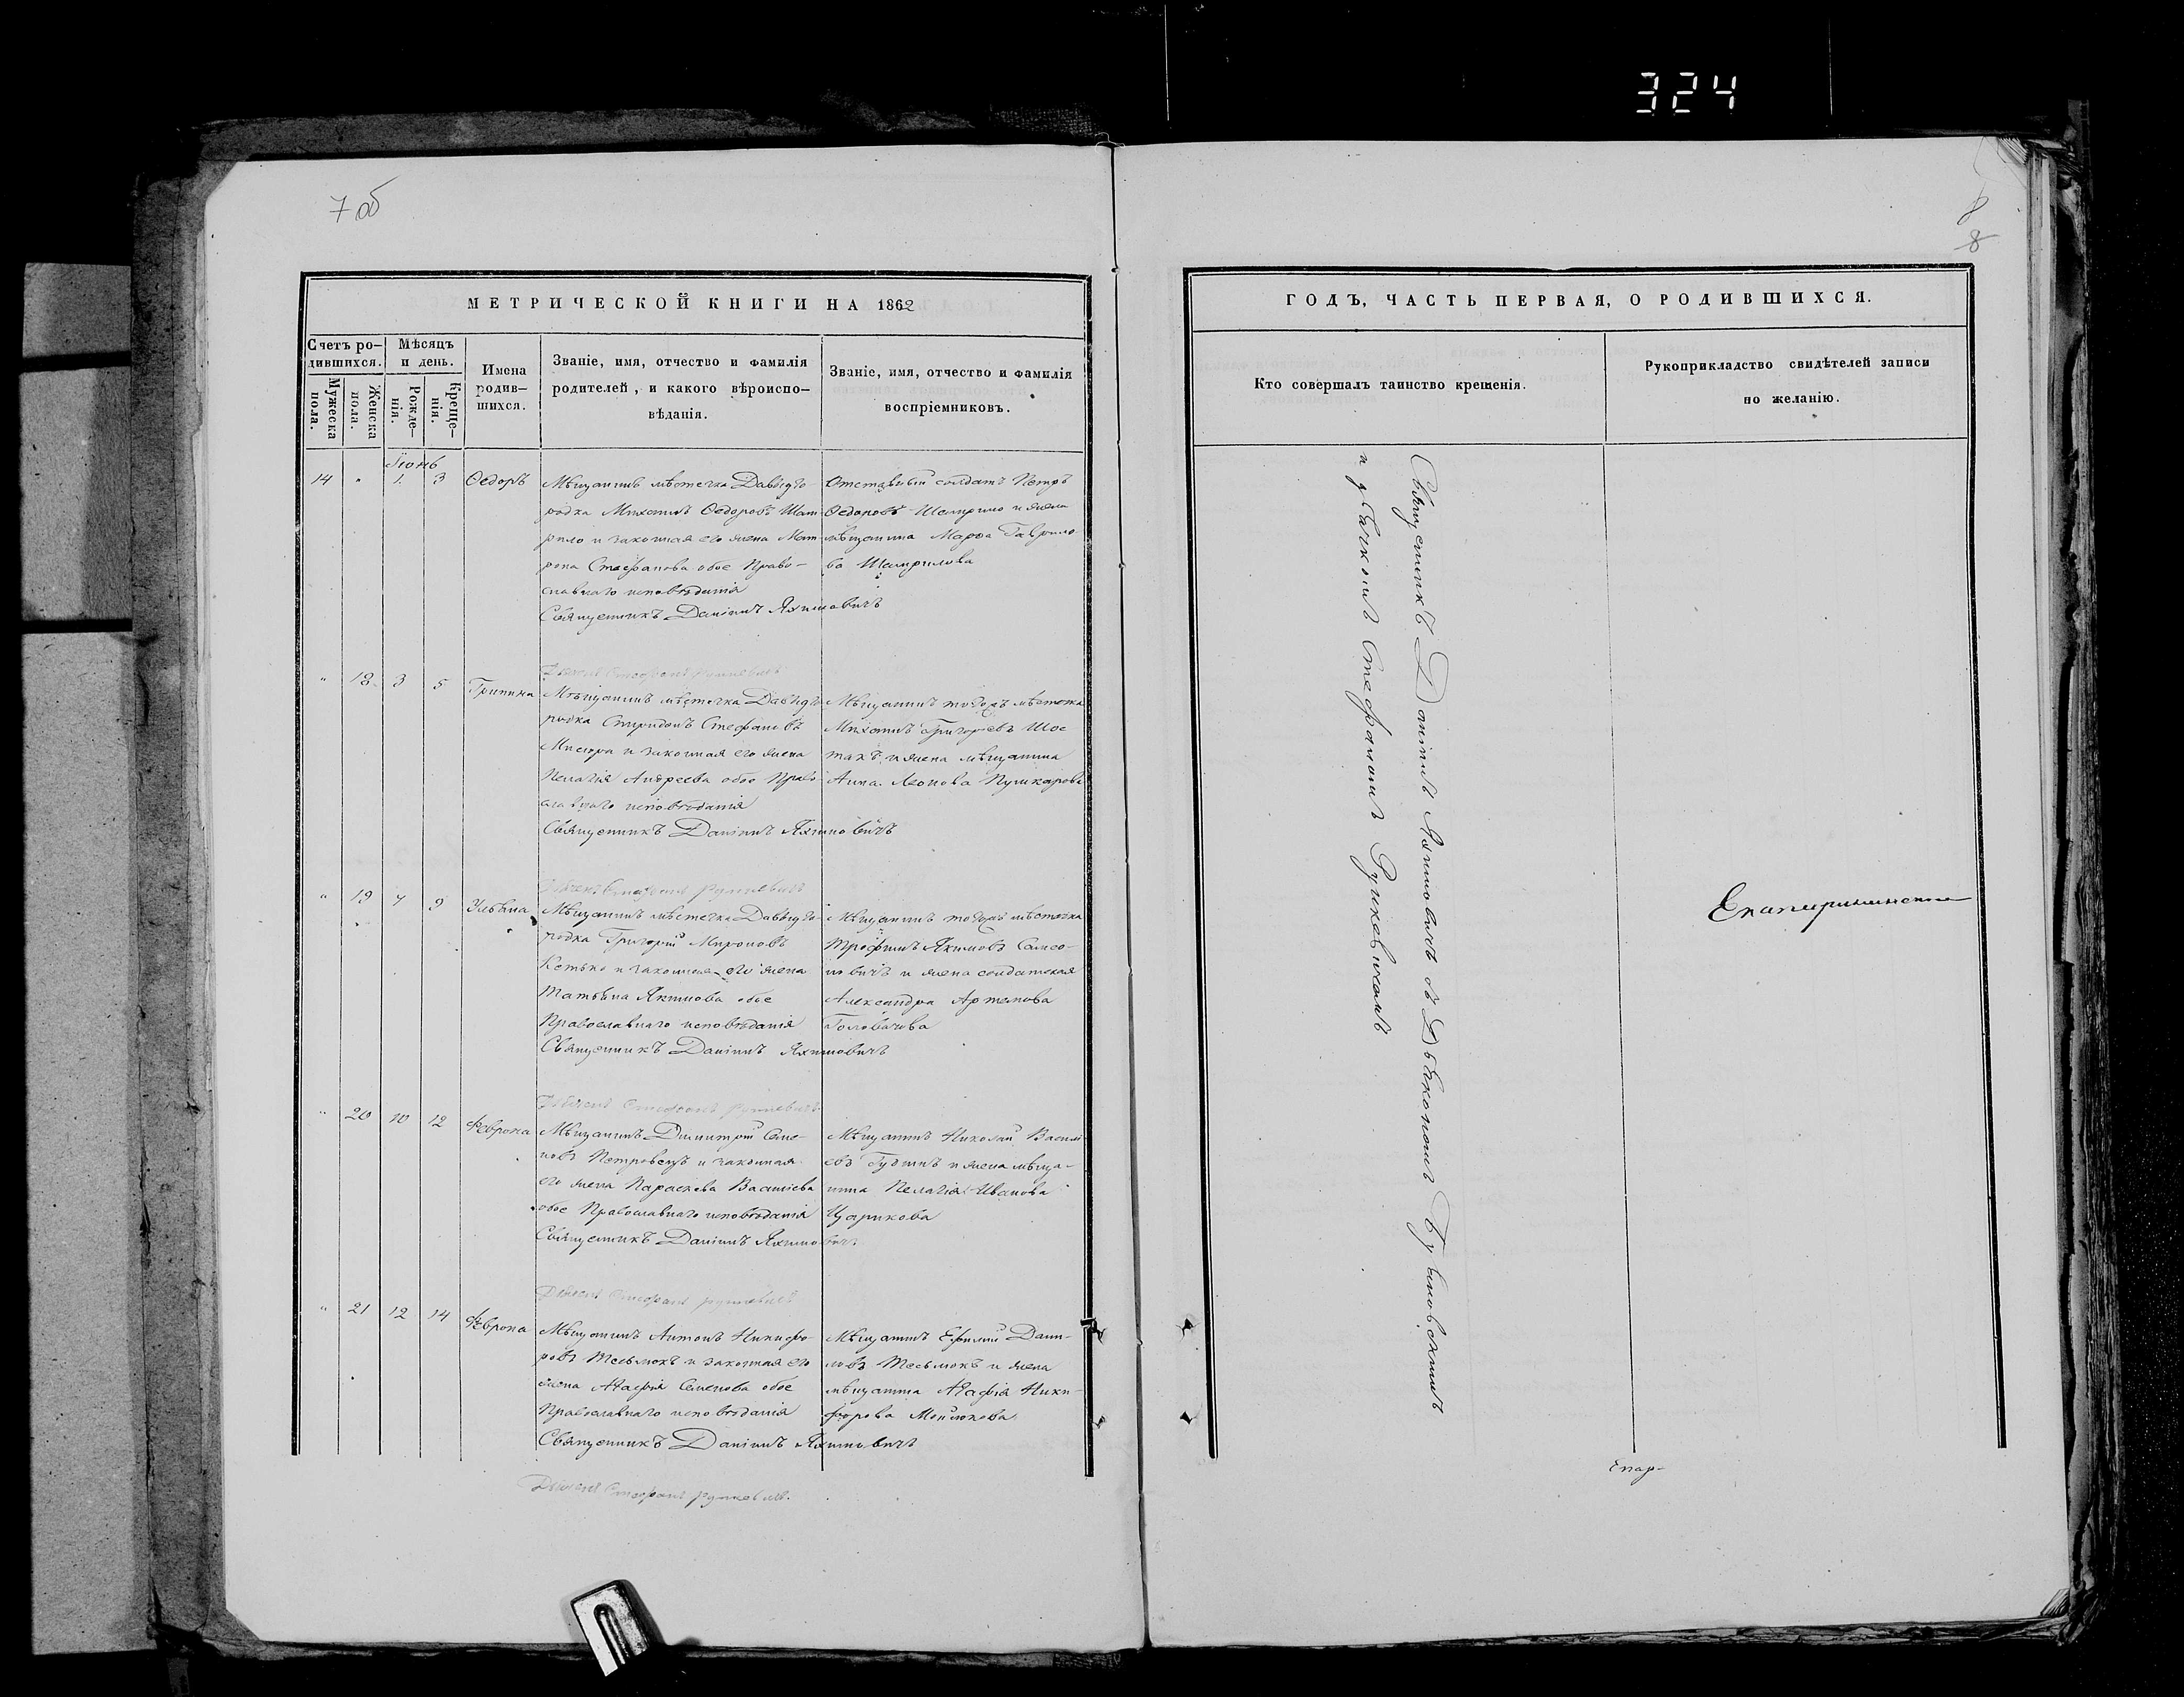 324
7 об
8
8
МЕТРИЧЕСКОЙ КНИГИ НА 1862
Счетъ ро-
дившихся.
Мужеска
пола.
Женска
пола.
Мѣсяцъ
и день.
Рожде-
нія.
Креще-
нія.
Имена
родив-
шихся.
Званіе, имя, отчество и фамилія
родителей, и какого вѣроиспо-
вѣданія.
Званіе, имя, отчество и фамилія
воспріемниковъ.
Іюнь
14 " 1. 3 Ѳедоръ
Мѣщанинъ мѣстечка Давыдго-
родка Михаилъ Ѳедоровъ Шам-
рило и законная его жена Мат-
рона Стефанова обое Право-
славнаго исповѣданія
Священникъ Даніилъ Яхимовичъ
Отставный солдатъ Петръ
Ѳедоровъ Шамрило и жена
мѣщанина Марѳа Гаврило-
ва Шамрилова
Дьячекъ Стефанъ Рункевичъ
" 18. 3 5 Грипина
Мѣщанинъ мѣстечка Давыдго-
родка Спиридонъ Стефановъ
Мисюра и законная его жена
Пелагія Андреева обое Право-
славнаго исповѣданія
Священникъ Даніилъ Яхимовичъ
Мѣщанинъ тогожъ мѣстечка
Михаилъ Григорьевъ Шос
такъ и жена мѣщанина
Анна Леонова Пушкарова
Дьячекъ Стефанъ Рункевичъ
" 19 7 9 Ульяна
Мѣщанинъ мѣстечка Давыдго-
родка Григорій Мироновъ
Кетько и законная его жена
Татьяна Якимова обое
Православнаго исповѣданія
Священникъ Даніилъ Яхимовичъ
Мѣщанинъ тогожъ мѣстечка
Трофимъ Якимовъ Самсо-
новичъ и жена солдатская
Александра Артемова
Головачова
Дьячекъ Стефанъ Рункевичъ
" 20 10 12 Феврона
Мѣщанинъ Димитрій Семе-
новъ Петровецъ и законная
его жена Параскева Василіева
обое Православнаго исповѣданія
Священникъ Даніилъ Яхимовичъ
Мѣщанинъ Николай Василь-
евъ Гудинъ и жена мѣща-
нина Пелагія Иванова
Царикова
Дьячекъ Стефанъ Рункевичъ
" 21 12 14 Феврона
Мѣщанинъ Антонъ Никифо-
ровъ Тесьмокъ и законная его
жена Агафія Семенова обое
Православнаго исповѣданія
Священникъ Даніилъ Яхимовичъ
Мѣщанинъ Ефимій Дани-
ловъ Тесьмокъ и жена
мѣщанина Агафія Ники-
форова
Дьячекъ Стефанъ Рункевичъ.
ГОДЪ, ЧАСТЬ ПЕРВАЯ, О РОДИВШИХСЯ.
Кто совершалъ таинство крещенія.
Рукоприкладство свидѣтелей записи
по желанію.
Священникъ Даніилъ Яхимовичъ съ Дьякономъ
и дьячкомъ Стефаномъ Рункевичемъ
Екатерининской
Епар-